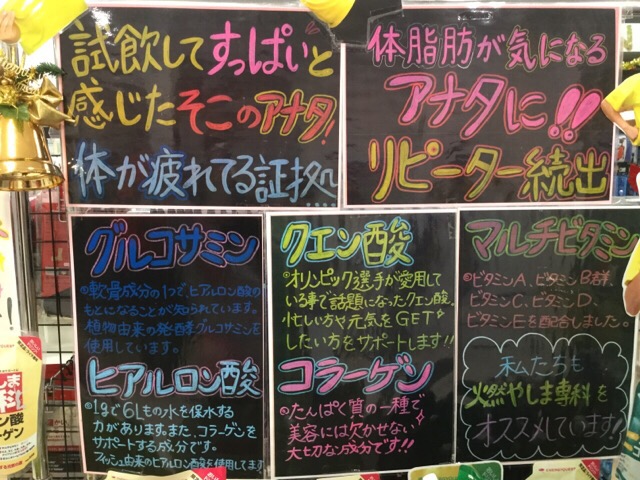 試飲してすっぱいと
感じたそこのアナタ!
体が疲れてる証拠
体脂肪が気になる
アナタに!!
リピーター続出
グルコサミン
◎軟骨成分の1つで、ヒアルロン酸の
もとになることが知られています。
植物由来の発酵グルコサミンを
使用しています。
ヒアルロン酸
◦1gで6Lもの水を保水する
力があります。また、コラーゲンを
サポートする成分です。
フィッシュ由来のヒアルロン酸を使用してます
クエン酸
◎オリンピック選手が愛用して
いる事で話題になったクエン酸。
忙しい方や元気をGET
したい方をサポートします!!
コラーゲン
◦たんぱく質の一種で
美容には欠かせない
大切な成分です!!
マルチビタミン
◎ビタミンA、ビタミンB群、
ビタミンC、ビタミンD、
ビタミンEを配合しました。
私たちも
燃やしま専科を
オススメしています!